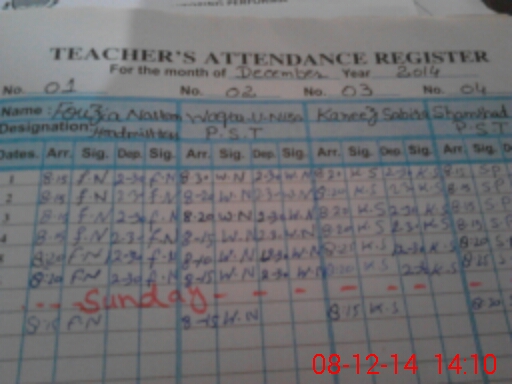 TEACHER'S ATTENDANCE REGISTER
For the month of December Year 2014
No. 01 No. 02 No. 03 No. 04
Name: Fouzia Waqba-U-Nisa Kaneez Sabida Shamshad
Designation: P.S.T P.S.T
Dates. Arr. Sig. Dep. Sig. Arr. Sig. Dep. Sig. Arr. Sig. Dep. Sig. Arr. Sig.
1 8-15 F.N 2-30 F.N 8-20 W.N 2-30 W.N 8-20 K.S 2-30 K.S 8-15 S.P
2 8-15 F.N 2-30 F.N 8-20 W.N 2-30 W.N 8-20 K.S 2-30 K.S 8-15 S.P
3 8-15 F.N 2-30 F.N 8-20 W.N 2-30 W.N 8-20 K.S 2-30 K.S 8-15
4 8-15 F.N 2-30 F.N 8-15 W.N 2-30 W.N 8-20 K.S 2-30 K.S 8-15
8-20 F.N 12-30 F.N 8-10 W.N 12-30 W.N 8-25 K.S 12-30 K.S 8-20
8-20 F.N 2-30 F.N 8-15 W.N 2-30 W.N 8-20 K.S 2-30 K.S 8-15
Sunday
8-15 F.N 8-15 W.N 8-15 K.S 8-20
08-12-14 14:10